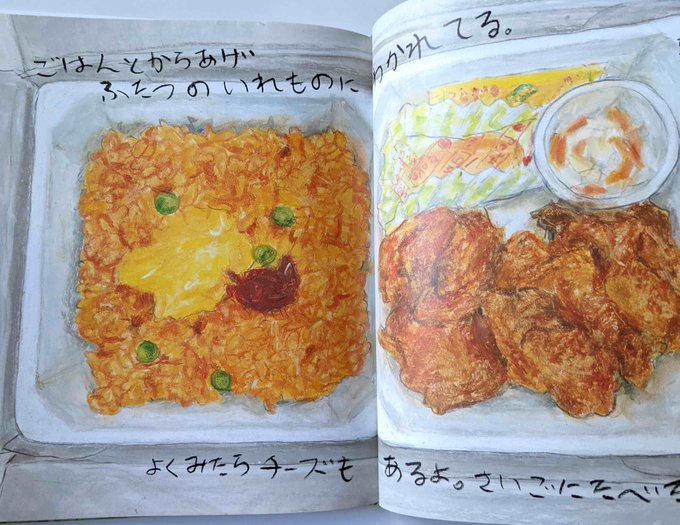 ごはんとからあげ
ふたつのいれものに
わかれてる。
よくみたらチーズも
あるよ。さいごにたべ